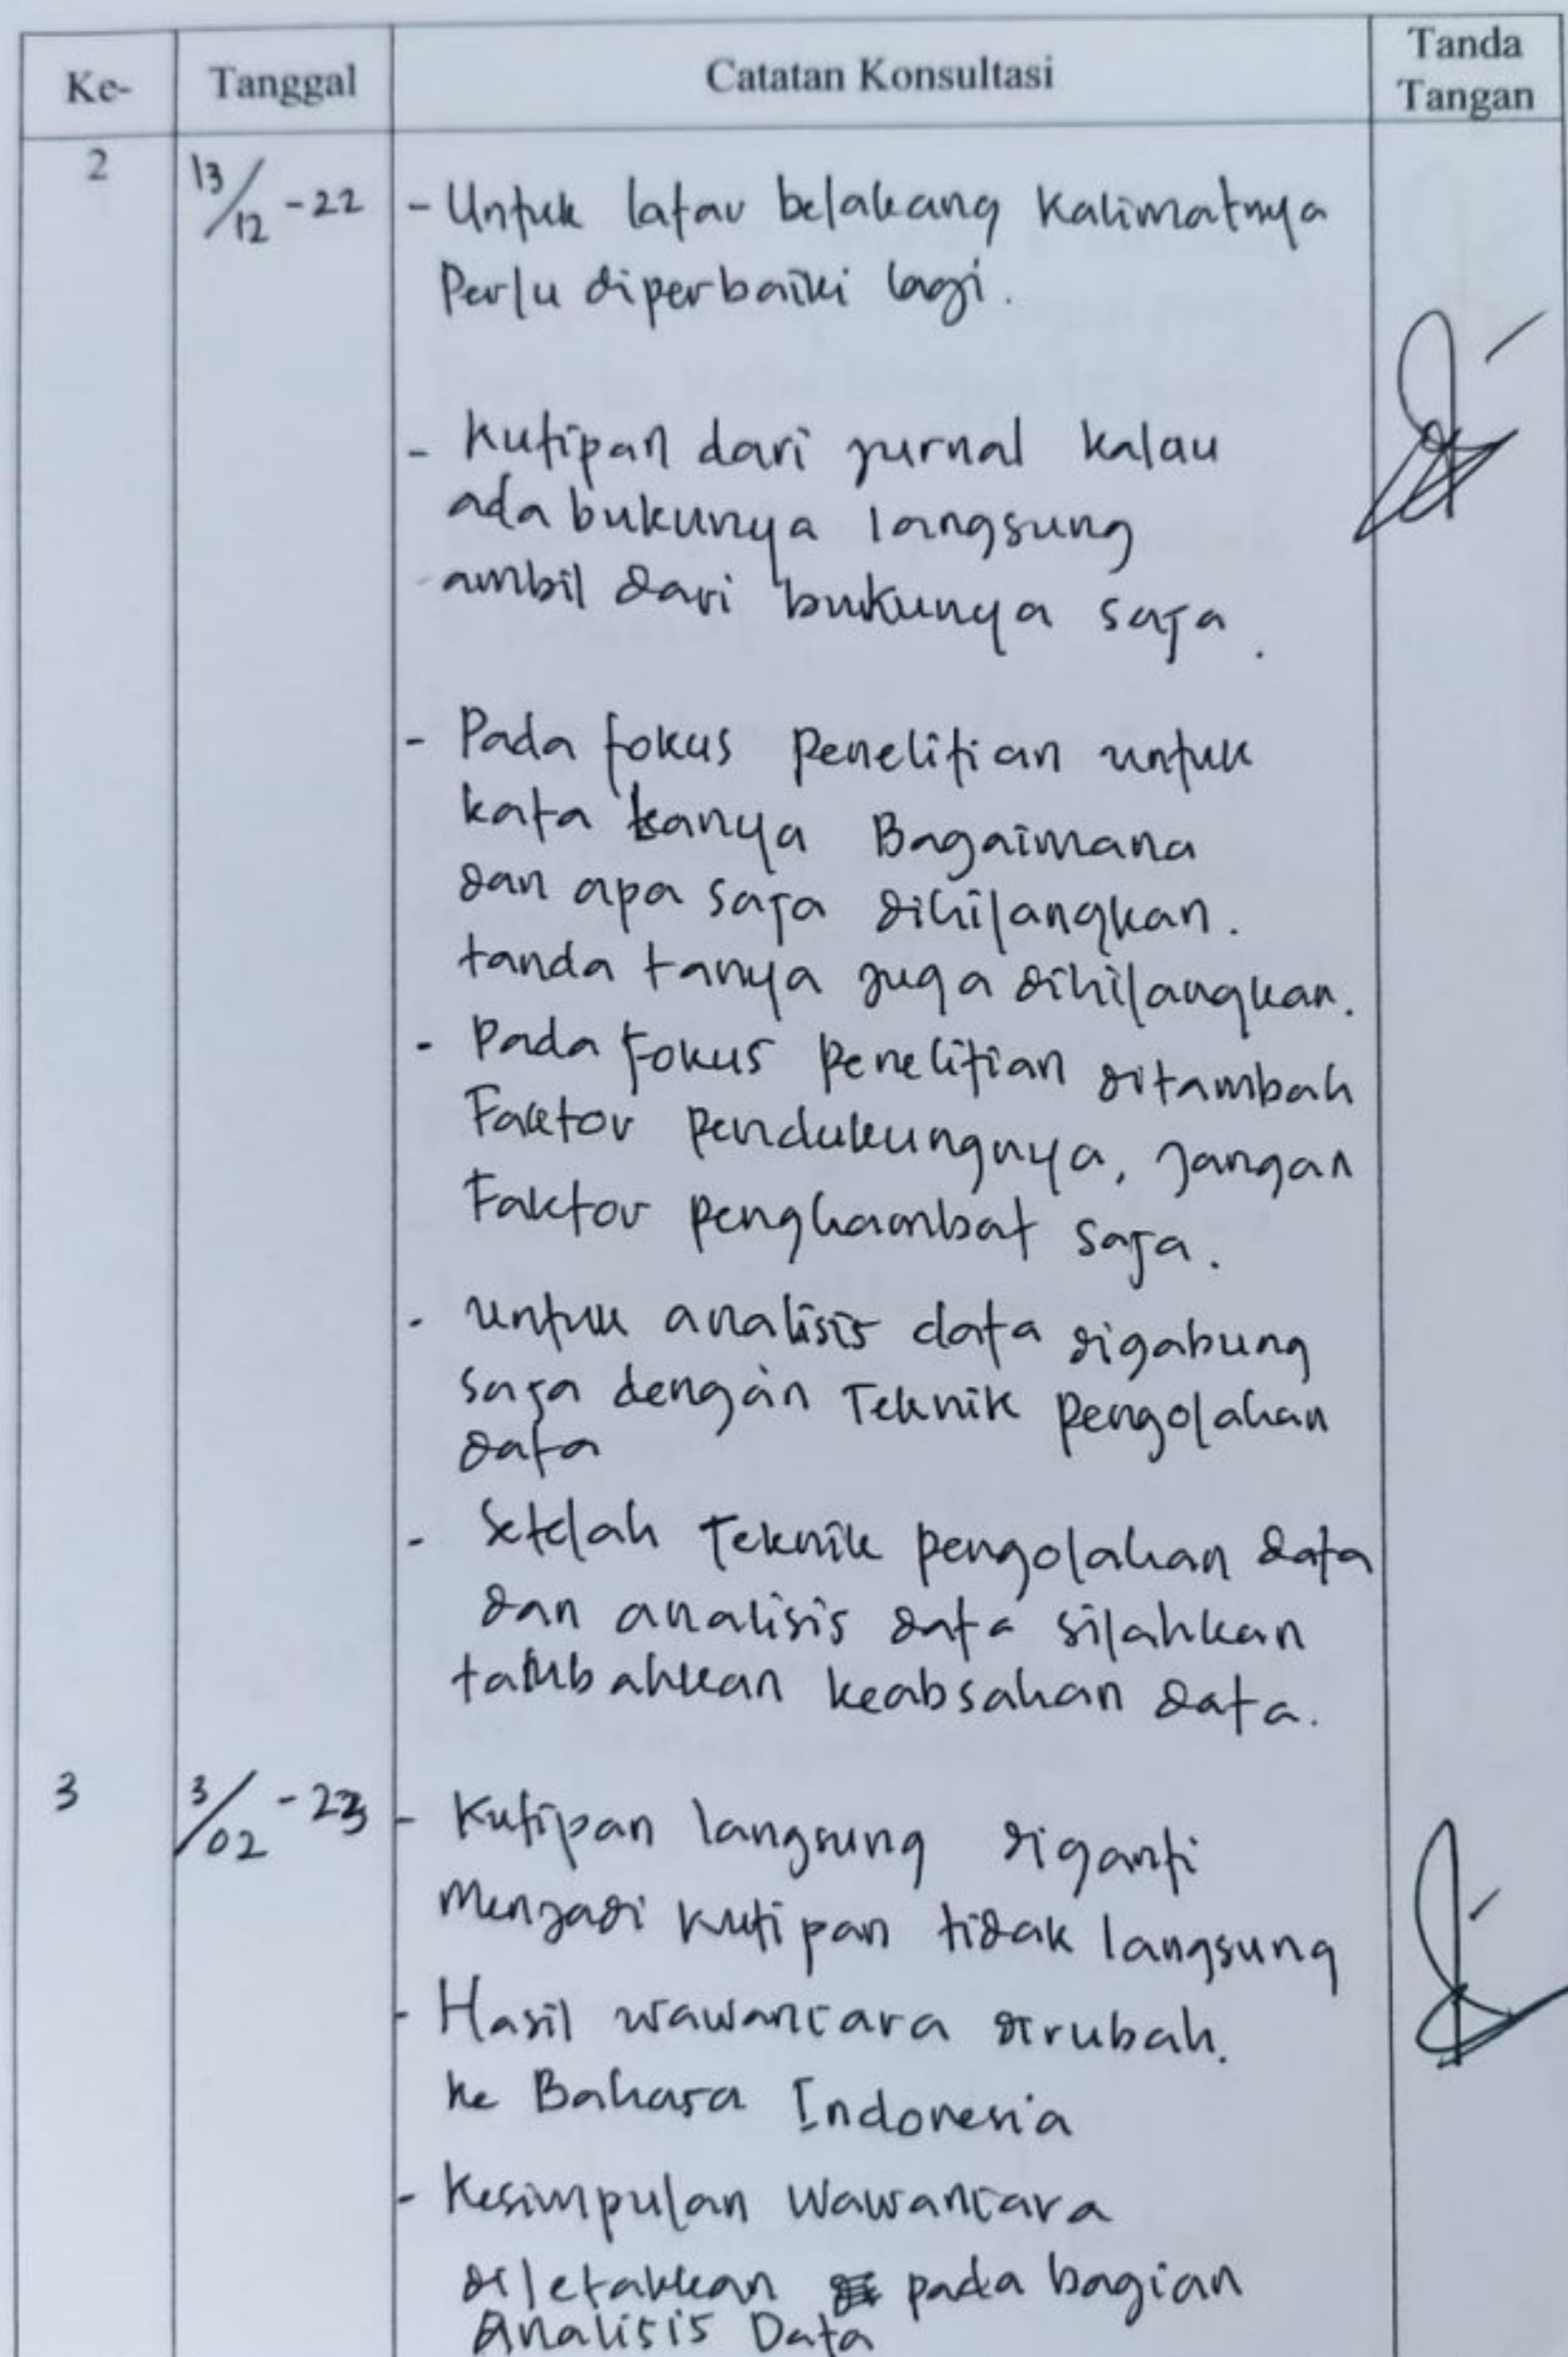 Ke- Tanggal Catatan Konsultasi Tanda Tangan
2 13/12 -22 - Untuk latar belakang kalimatnya
Perlu diperbaiki lagi.
- Kutipan dari jurnal kalau
ada bukunya langsung
ambil dari bukunya saja.
- Pada fokus penelitian untuk
kata tanya Bagaimana
dan apa saja dihilangkan.
tanda tanya juga dihilangkan.
- Pada Fokus penelitian ditambah
Faktor pendukungnya, jangan
Faktor penghambat saja.
- untuk analisis data digabung
saja dengan Teknik pengolahan
data
- Setelah Teknik pengolahan data
dan analisis data silahkan
tambahkan keabsahan data.
3 3/02 -23 - Kutipan langsung diganti
Menjadi kutipan tidak langsung
- Hasil wawancara dirubah.
ke Bahasa Indonesia
- Kesimpulan wawancara
diletakkan pada bagian
Analisis Data